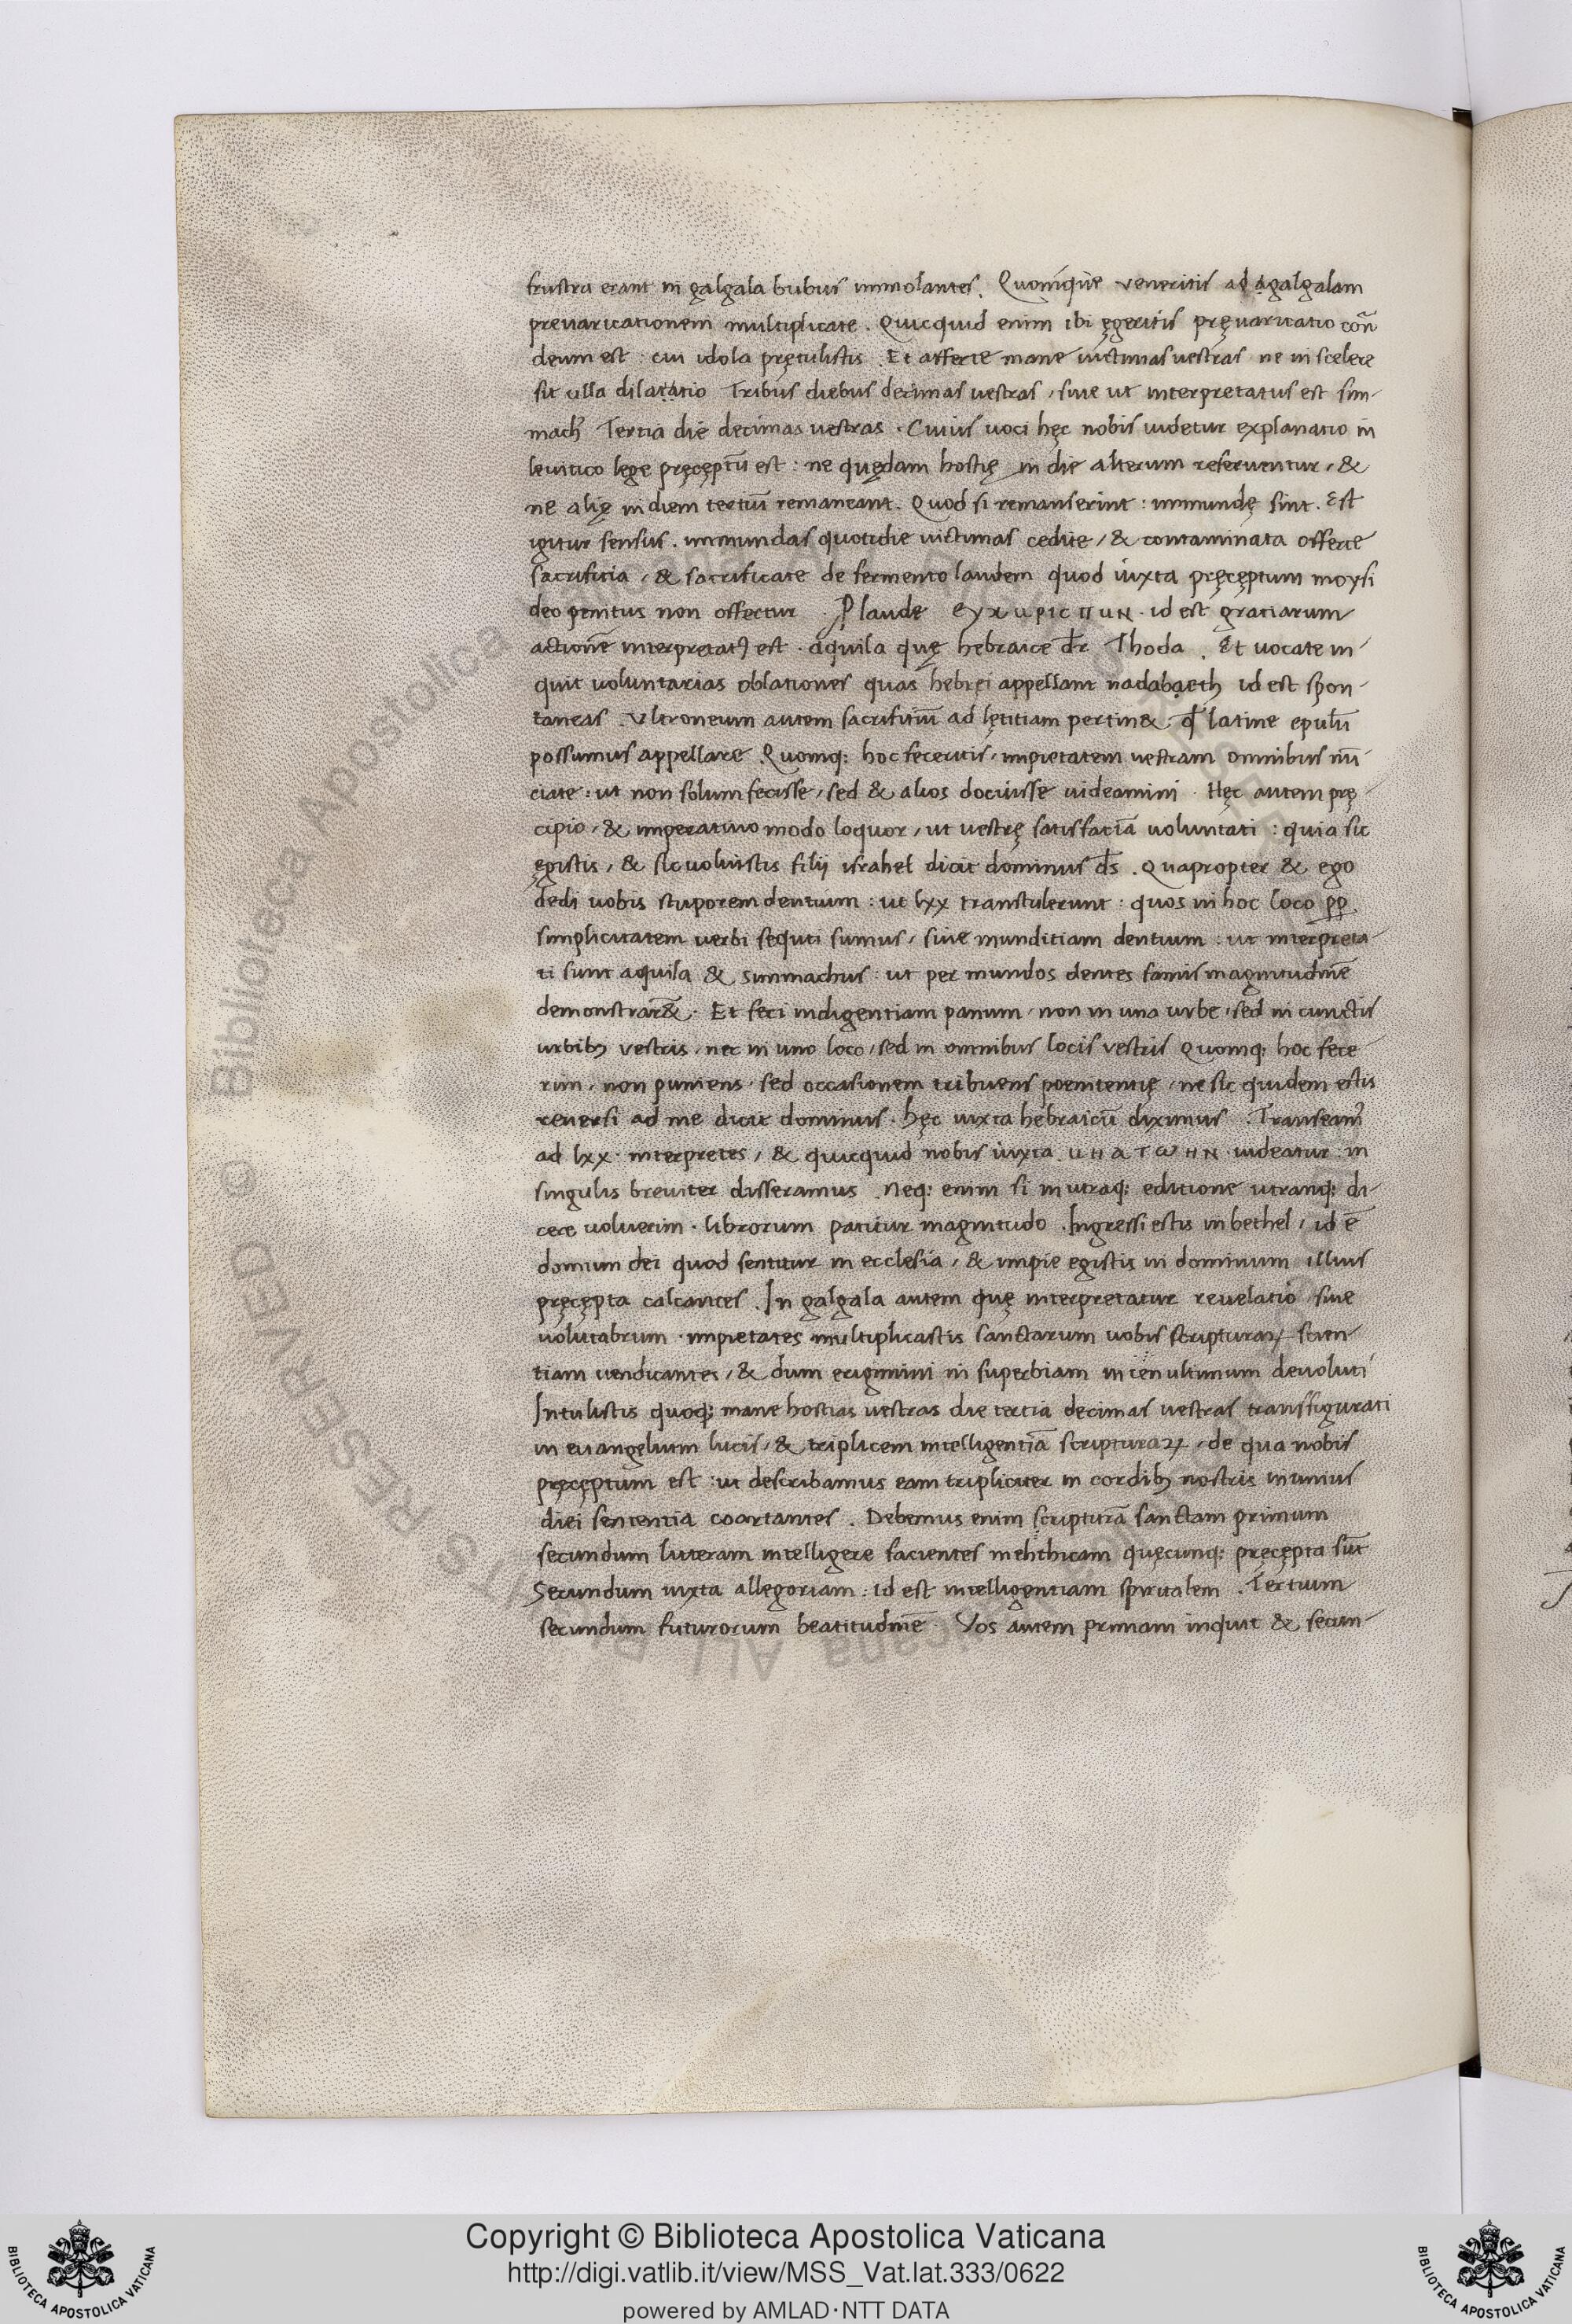 frustra erant in galgala bubus immolantes. Quomq́ue veneritis ad agalgalam
preuaricationem multiplicate. Quicquid enim ibi ęgeritis pręuaricatio con̄
deum est: cui idola prętulistis. Et afferte mane uictimas uestras ne in scelere
sit ulla dilatatio Tribus diebus decimas uestras, siue ut interpretatus est sim-
mach᾽ Tertia die decimas uestras. Cuius uoci hęc nobis uidetur explanatio in
leuitico lege pręcęptū est: ne quędam hostię in die alterum referuentur, &
ne alię in diem tertiū remaneant. Quod si remanserint: immundę sint. Est
igitur sensus. immundas quotidie uictimas cedite, & contaminata offerte
sacrificia, & sacrificate de fermento laudem quod iuxta pręcęptum moysi
deo penitus non offertur. P laude ΕΥΧΑΡΙCΠUN. id est gratiarum
actionē interpretatꝰ est. aquila quę hebraice dr̄ Thoda. Et uocate in-
quit uoluntarias oblationes quas hebręi appellant nadabaeth id est spon-
taneas. Vltroneum autem sacrifitiū ad lętitiam pertin& qď latine epulū
possumus appellare. Quomq: hoc feceritis, impietatem uestram omnibus nū-
ciate: ut non solum fecisse, sed & alios docuisse uideamini. Hęc autem prę-
cipio, & imperatiuo modo loquor, ut uestrę satisfaciā uoluntati: quia sic
ęgistis, & sic uoluistis filij israhel dicit dominus ds̄. Quapropter & ego
dedi uobis stuporem dentium: ut lxx transtulerunt: quos in hoc loco pp̱
simplicitatem uerbi sequti sumus, siue munditiam dentium: ut interpreta-
ti sunt aquila & simmachus: ut per mundos dentes famis magnitudinē
demonstrar&. Et feci indigentiam panum, non in una urbe, sed in cunctis
urbibꝫ vestris, nec in uno loco, sed in omnibus locis vestris Quomq: hoc fece-
rim, non puniens, sed occasionem tribuens poenitentię, ne sic quidem estis
reuersi ad me dicit dominus. hęc iuxta hebraicū diximus. Transeamꝰ
ad lxx. interpretes, & quicquid nobis iuxta UHATωHN uideatur in
singulis breuiter disseramus. Neq: enim si in utraq: editione utranq: di-
cere uoluerim. librorum patitur magnitudo. Ingressi estis in bethel, id ē
domum dei quod sentitur in ecclesia, & impie egistis in dominum illius
pręcępta calcantes. In galgala autem quę interpretatur reuelatio siue
uolutabrum. impietates multiplicastis sanctarum uobis scripturaꝝ scien-
tiam uendicantes, & dum erigimini in superbiam in cen ultimum deuoluti
Intulistis quoq: mane hostias uestras die tertia decimas uestras transfigurati
in euangelium lucis, & triplicem intelligentiā scripturaꝝ, de qua nobis
pręcęptum est: ut describamus eam tripliciter in cordibꝫ nostris in unius
diei sententia coartantes. Debemus enim scripturā sanctam primum
secundum litteram intelligere facientes in ehthicam quęcunq: pręcępta sūt
Secundum iuxta allegoriam: id est intelligentiam spiritualem. Tertium
secundum futurorum beatitudinē Vos autem primam inquit & secun-
Copyright © Biblioteca Apostolica Vaticana
http://digi.vatlib.it/view/MSS_Vat.lat.333/0622
powered by AMLAD·NTT DATA